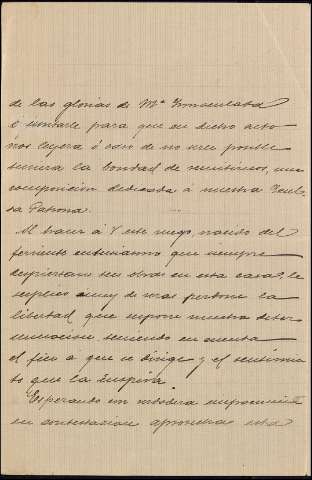 de las glorias de Mª Inmaculada
é invitarle para que en dicho acto
nos leyera ó caso de no ser posible
tuviera la bondad de remitirnos, una
composición dedicada á nuestra Excel-
sa Patrona.
Al hacer á V este ruego, nacido del
ferviente entusiasmo que siempre
despiertan sus obras en esta casa, le
suplico á muy de veras perdone la
libertad que supone nuestra deter-
minacion teniendo en cuenta
el fin a que se dirige y el sentimien
to que la inspira.
Esperando
su contestacion aprovecha esta